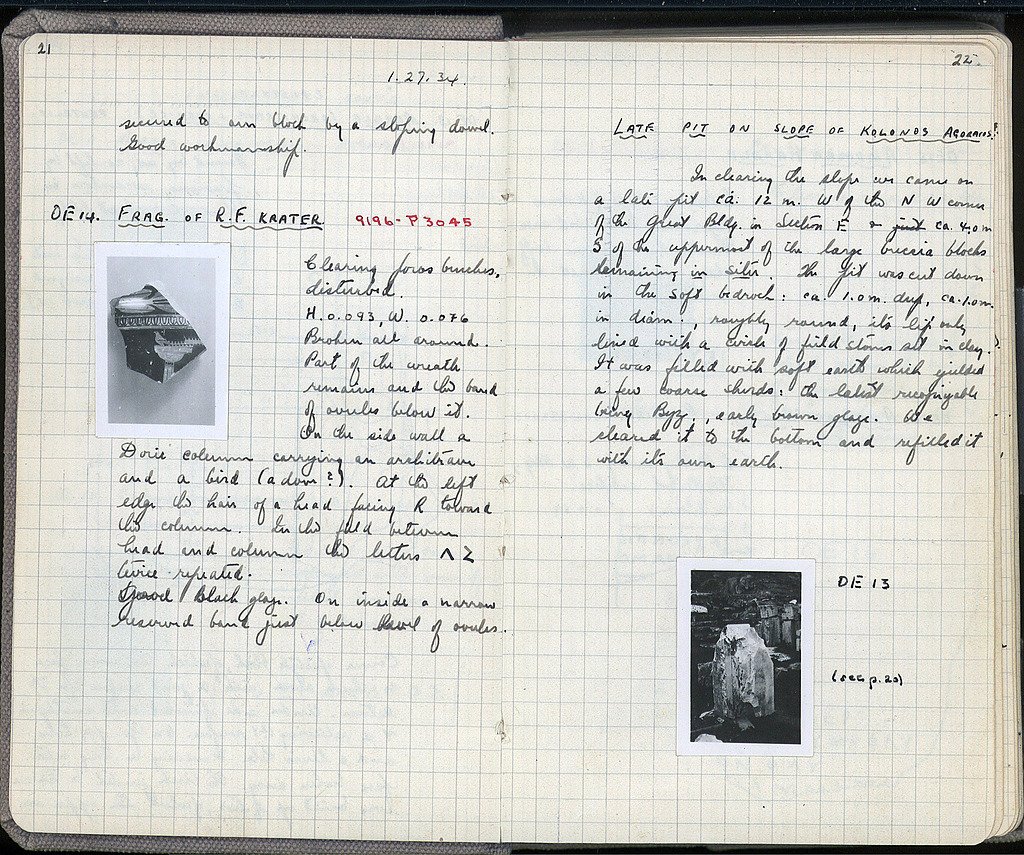 21
1.27.34.
secured to own block by a sloping dowel.
Good workmanship.
DE 14. FRAG. OF R.F. KRATER 9196-P3045
Clearing foros bunches,
disturbed.
H. 0.093, W. 0.076
Broken all around.
Part of the wreath
remains and the band
of ovules below it.
On the side wall a
Doric column carrying an architrave
and a bird (a dove?). At the left
edge the hair of a head facing R toward
the column. In the field between
head and column the letters Λ Σ
twice repeated.
Good black glaze. On inside a narrow
reserved band just below level of ovules.
22.
LATE PIT ON SLOPE OF KOLONOS AGORAIOS.
In clearing the slope we came on
a late pit ca. 12 m. W of the N W corner
of the Great Bldg. in Section E & just ca. 4.0 m
S of the uppermost of the large breccia blocks
remaining in situ. The pit was cut down
in the soft bedrock: ca. 1.0 m. deep, ca. 1.0 m.
in diam., roughly round, its lip only
lined with a circle of field stones set in clay.
It was filled with soft earth which yielded
a few coarse sherds: the latest recognizable
being Byz., early brown glaze. We
cleared it to the bottom and refilled it
with its own earth.
DE 13
(see p. 20)